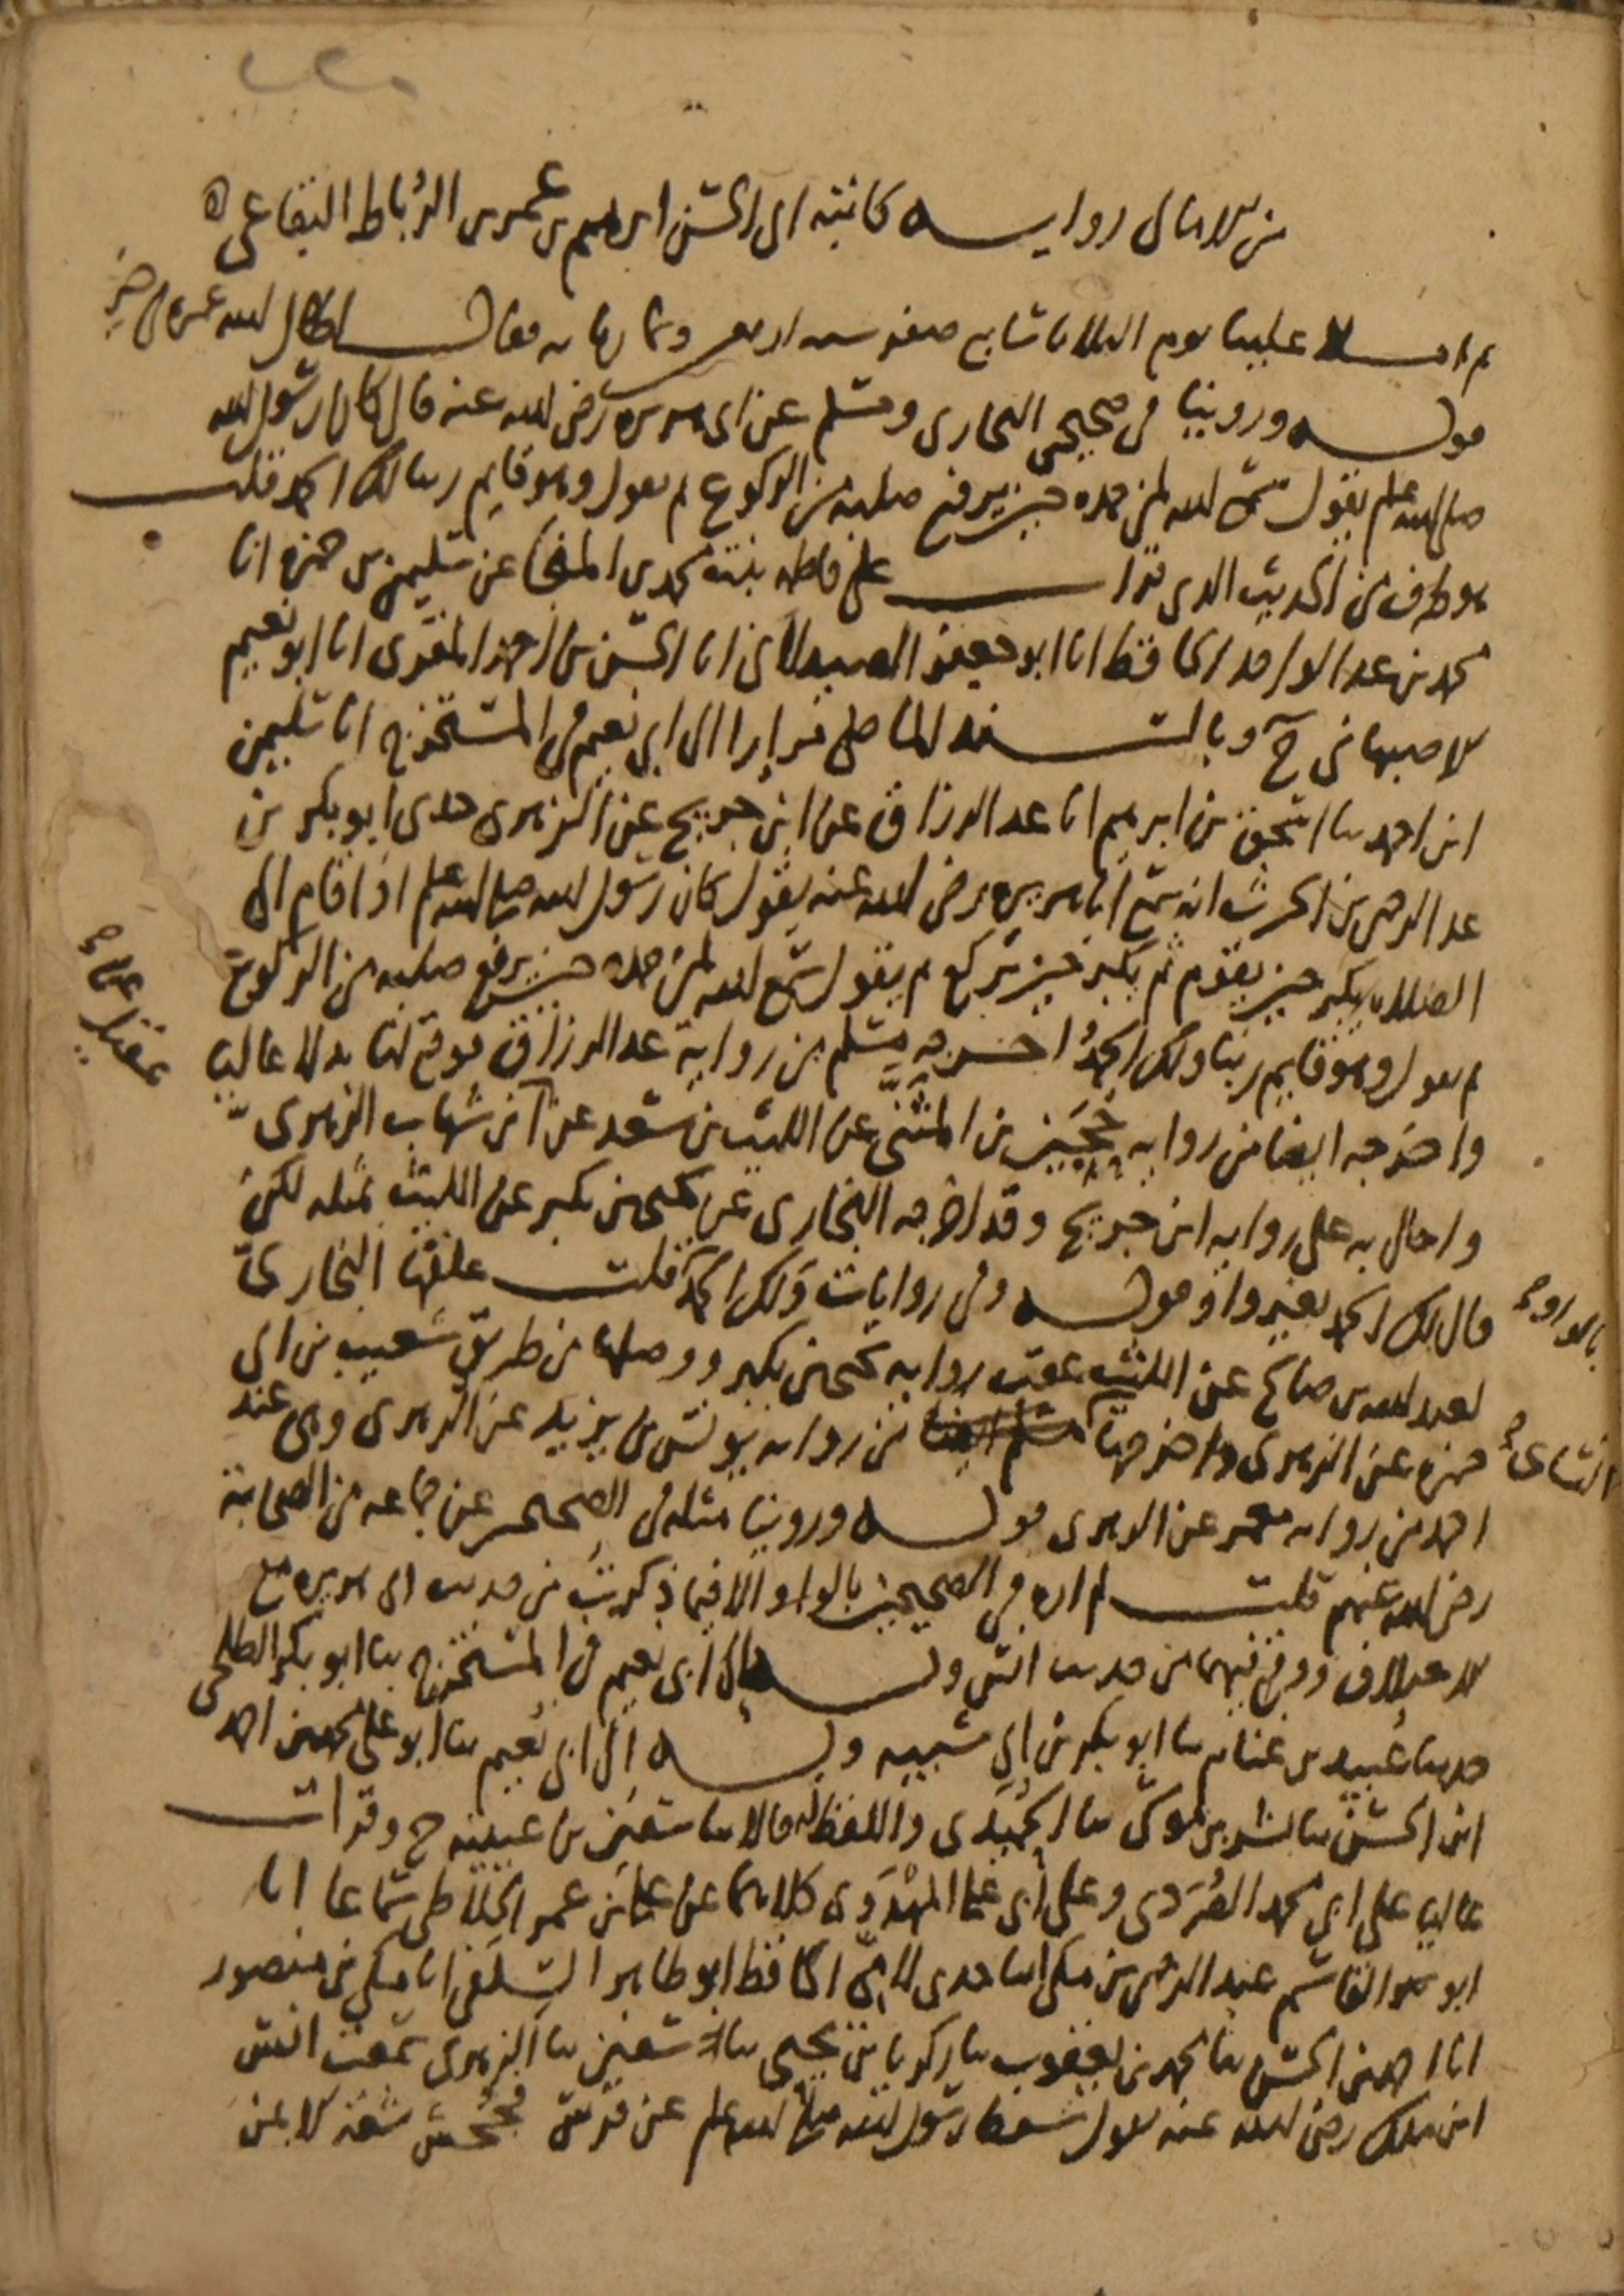 من الامالى رواية كاتبه ابى الحسن ابرهيم بن عمر بن الرباط البقاعى
ثم املا علينا يوم الثلاثا سابع صفر سنه اربعين وثمان مايه فقال اطال الله عمره فى خير
قوله وروينا فى صحيحى البخارى ومسلم عن ابى هريره رضى الله عنه قال كان رسول الله
صلى الله عليه وسلم يقول سمع الله لمن حمده حين يرفع صلبه من الركوع ثم يقول وهو قايم ربنا لك الحمد قلت
هو طرف من الحديث الذى قرات على فاطمه بنت محمد بن المنجا عن سليمن بن حمزه انا
محمد بن عبد الواحد الحافظ انا ابو جعفر الصيدلانى انا الحسن بن احمد المقرى انا ابو نعيم
الاصبهانى ح وبالسند الماضى مرارا الى ابى نعيم فى المستخرج انا سليمن
ابن احمد بنا اسحق بن ابرهيم انا عبد الرزاق عن ابن جريج عن الزهرى حدثنى ابو بكر بن
عبد الرحمن بن الحرث انه سمع ابا هريره رضى الله عنه يقول كان رسول الله صلى الله عليه وسلم اذا قام الى
الصلاه يكبر حين يقوم ثم يكبر حين يركع ثم يقول سمع الله لمن حمده حين يرفع صلبه من الركوع
ثم يقول وهو قايم ربنا ولك الحمد اخرجه مسلم من رواية عبد الرزاق فوقع لنا بدلا عاليا
واخرجه ايضا من روايه حجين بن المثنى عن الليث بن سعد عن ابن شهاب الزهرى
عقيل عن صح
واحال به على روايه ابن جريج وقد اخرجه البخارى عن يحيى بن بكير عن الليث بمثله لكن
قال لك الحمد بغير واو قوله وفى روايات ولك الحمد قلت علقها البخارى
بالواو صح
لعبد الله بن صالح عن الليث عقب روايه يحيى بن بكير ووصلها من طريق شعيب بن ابى
حمزه عن الزهرى واخرجها من روايه يونس بن يزيد عن الزهرى وهى عند
النساى صح
احمد من روايه معمر عن الزهرى قوله وروينا مثله فى الصحيحين عن جماعه من الصحابة
رضى الله عنهم قلت لم اره فى الصحيحين بالواو الا فيما ذكرت من حديث ابى هريره مع
الاختلاف ووقع فيهما من حديث انس وبه الى ابى نعيم فى المستخرج بنا ابو بكر الطلحى
حدثنا عبيد بن غنام بنا ابو بكر بن ابى شيبه وبه الى ابى نعيم بنا ابو على محمد بن احمد
ابن الحسن بنا بشر بن موسى بنا الحميدى واللفظ له قالا بنا سفين بن عيينه ح وقرات
عاليا على ابى محمد الفردى وعلى ابى على المهدوى كلاهما عن على بن عمر الخلاطى سماعا انا
ابو القاسم عبد الرحمن بن مكى انا جدى لامى الحافظ ابو طاهر السلفى انا مكى بن منصور
انا احمد بن الحسن بنا محمد بن يعقوب بنا زكريا بن يحيى بنا سفين بنا الزهرى سمعت انس
ابن ملك رضى الله عنه يقول سقط رسول الله صلى الله عليه وسلم عن فرس فجحش شقه الايمن